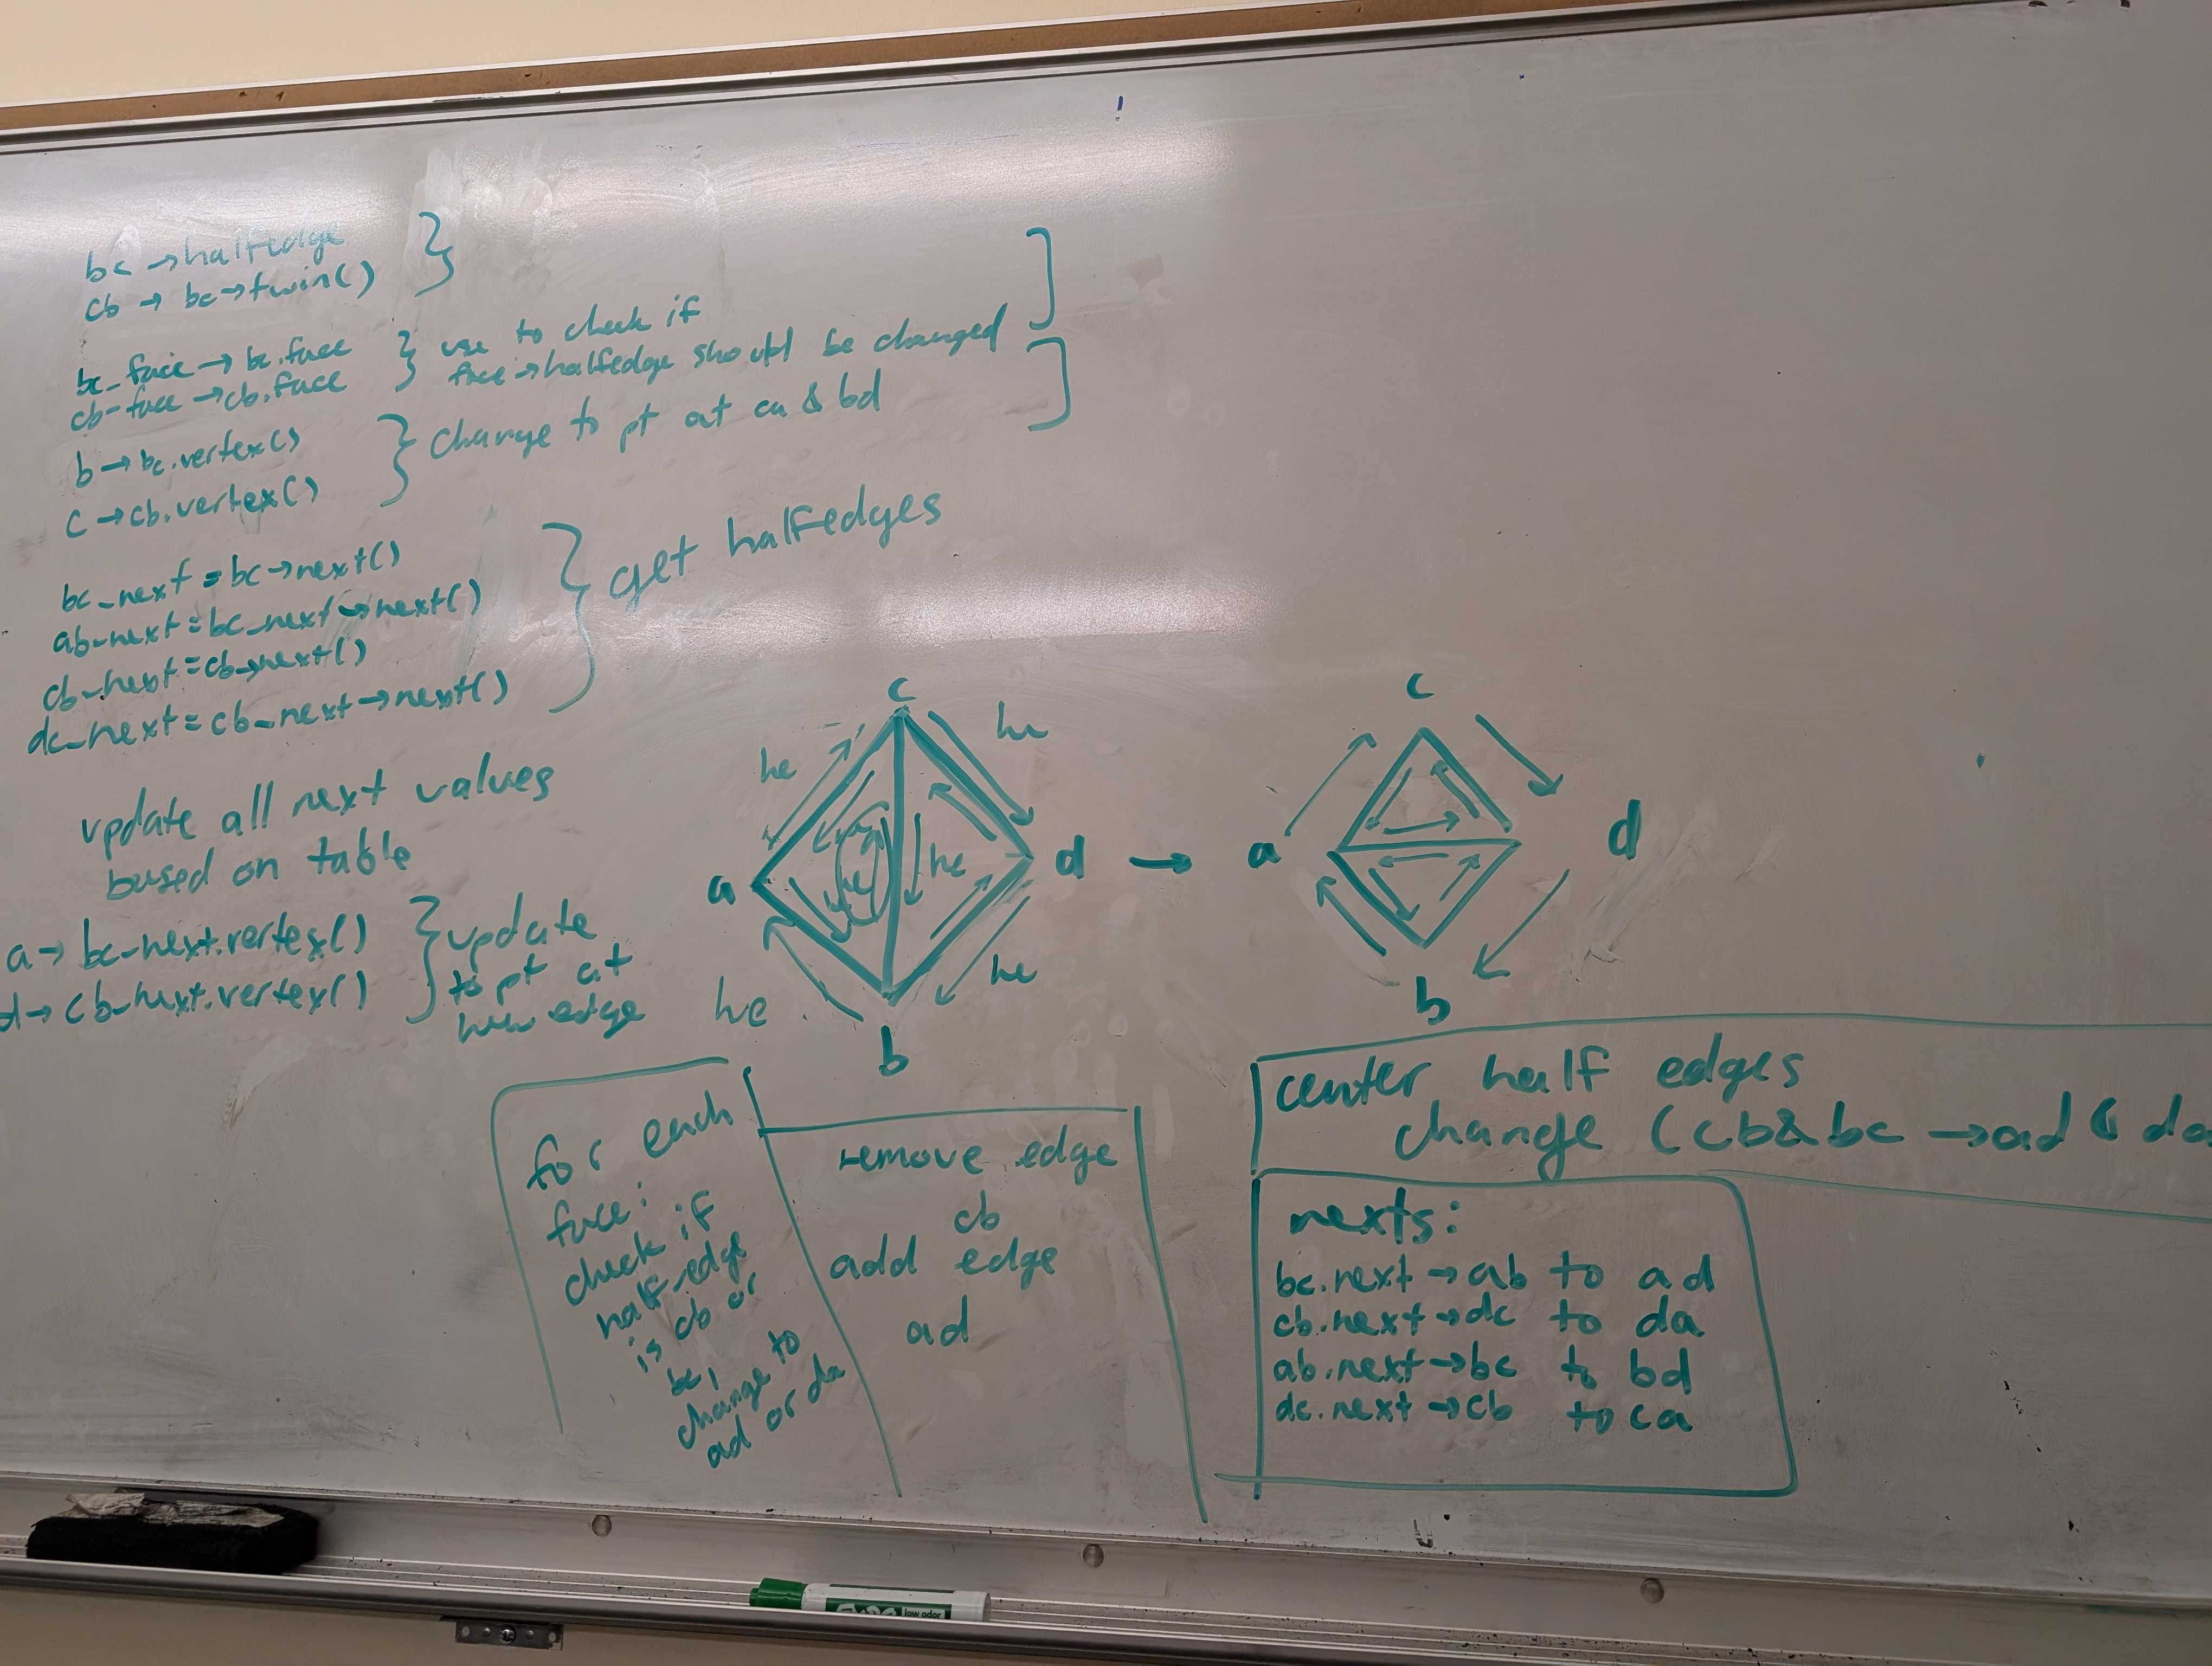 bc → halfedge
cb → bc→twin()
bc_face → bc.face
cb-face → cb.face
use to check if
face → halfedge should be changed
b → bc.vertex()
c → cb.vertex()
change to pt at ca & bd
bc_next = bc→next()
ab_next = bc_next→next()
cb_next = cb→next()
dc_next = cb_next→next()
get halfedges
update all next values
based on table
a → bc_next.vertex()
d → cb_next.vertex()
update
to pt at
new edge
c
he
he
a
he
he
d
he
he
b
→
c
a
d
b
for each
face:
check if
half-edge
is cb or
bc,
change to
ad or da
remove edge
cb
add edge
ad
center half edges
change (cb&bc → ad & da
nexts:
bc.next → ab to ad
cb.next → dc to da
ab.next → bc to bd
dc.next → cb to ca
EXPO low odor